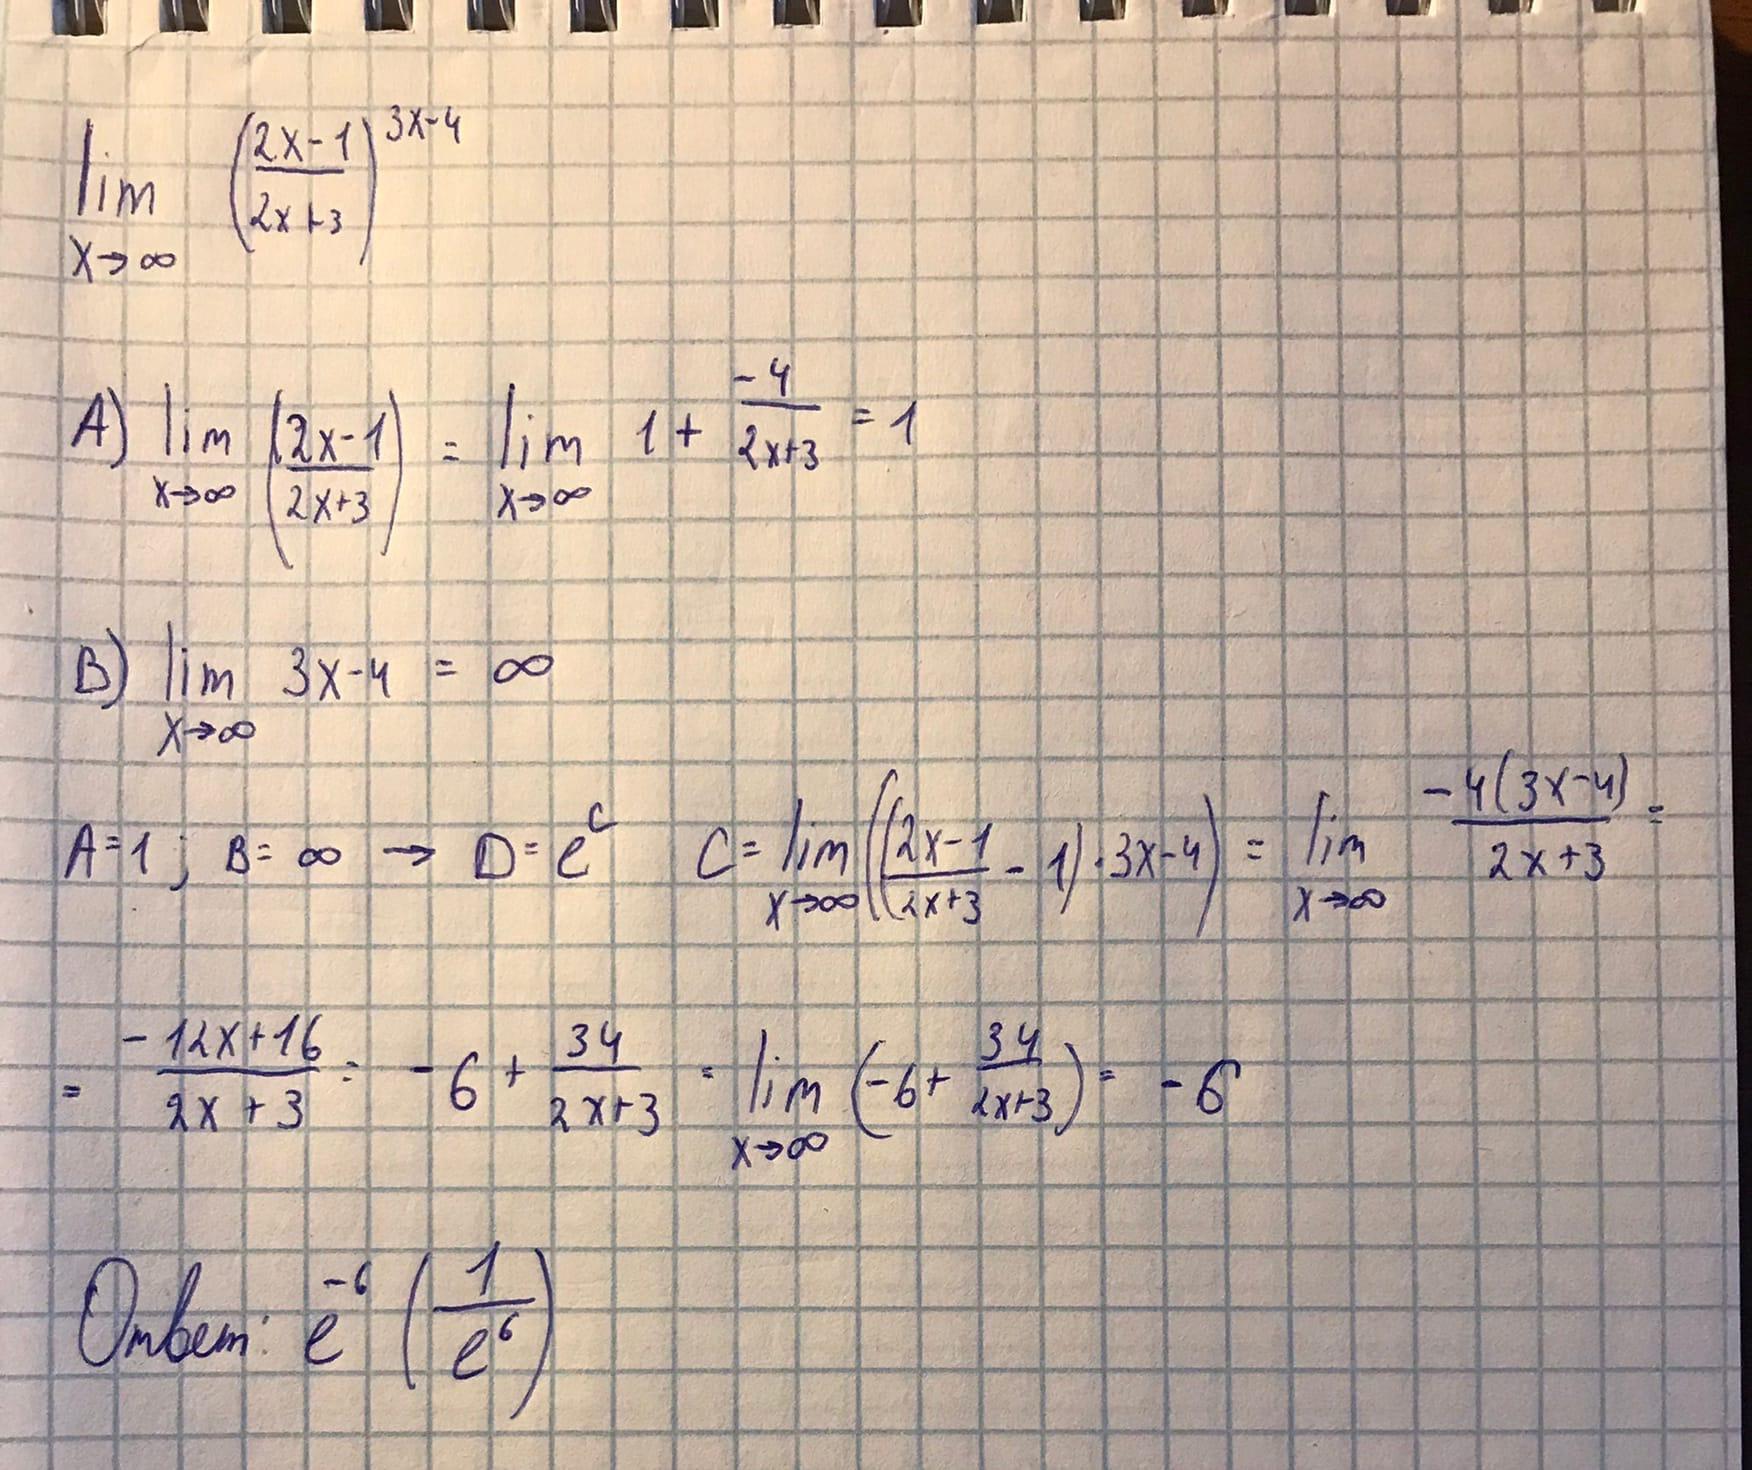 lim x→∞ ((2x-1)/(2x+3))^(3x-4)
A) lim x→∞ ((2x-1)/(2x+3)) = lim x→∞ 1 + (-4)/(2x+3) = 1
B) lim x→∞ 3x-4 = ∞
A=1; B=∞ → D=e^c C= lim x→∞ (((2x-1)/(2x+3) - 1)·3x-4) = lim x→∞ (-4(3x-4))/(2x+3) =
= (-12x+16)/(2x+3) = -6 + 34/(2x+3) = lim x→∞ (-6+ 34/(2x+3)) = -6
Ответ: e^-6 (1/e^6)